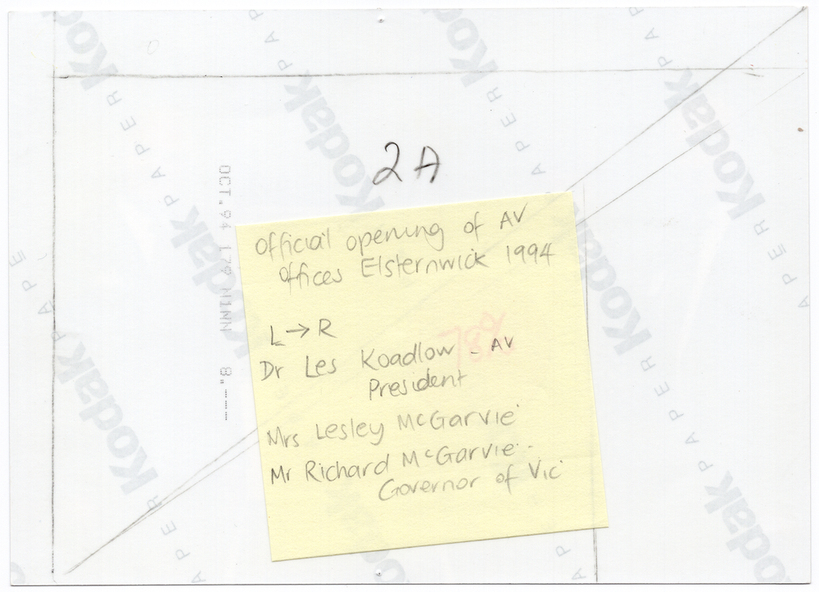 2A
OCT.94
Official opening of AV
Offices Elsternwick 1994
L → R
Dr Les Koadlow - AV
President
78%
Mrs Lesley McGarvie
Mr Richard McGarvie -
Governor of Vic
Kodak PAPER